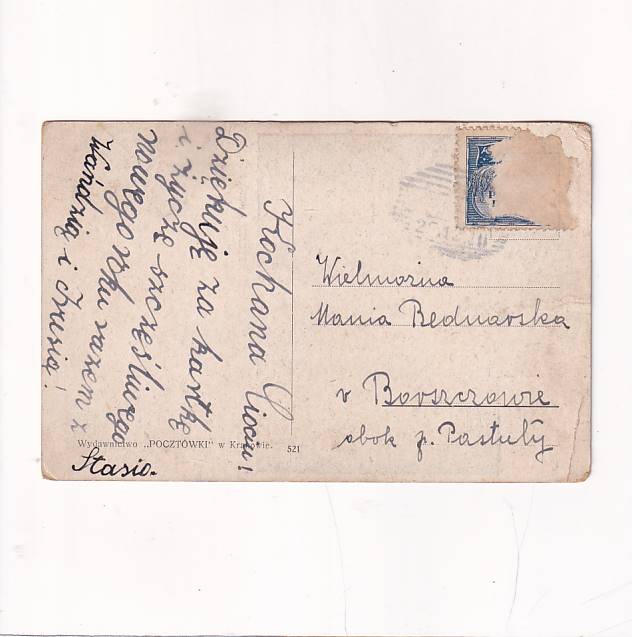 Kochana Ciociu!
Dziękuję za kartkę
i życzę szczęśliwego
nowego roku razem z
Wandzią i Irusią!
Stasio.
Wydawnictwo „POCZTÓWKI" w Krakowie.
521
Wielmożna
Mania Bednarska
v Borszczowie
obok p. Pastuły